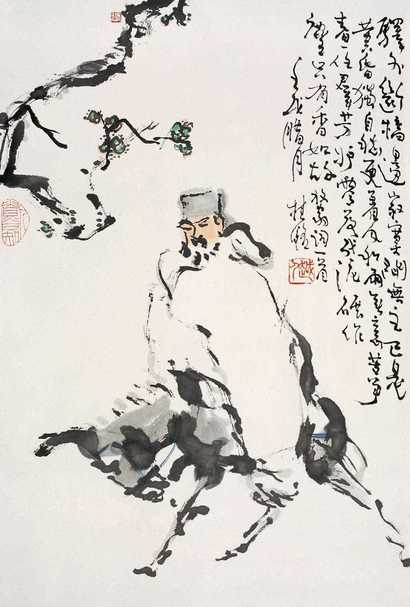 驛外斷橋邊寂寞開無主已是
黃昏獨自愁更着風和雨無意苦爭
春一任羣芳妒零落成泥碾作
塵只有香如故放翁詞一首
壬戌腊月